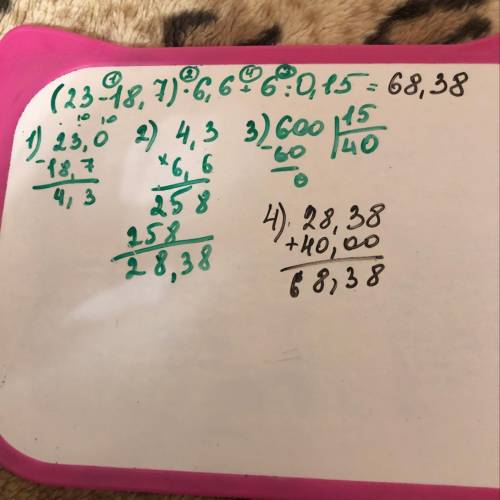 ① ② ④ ③
(23-18,7)·6,6+6:0,15=68,38
1) 23,0
-18,7
4,3
2) 4,3
×6,6
258
258
28,38
3) 600 |15
-60 40
0
4) 28,38
+40,00
68,38